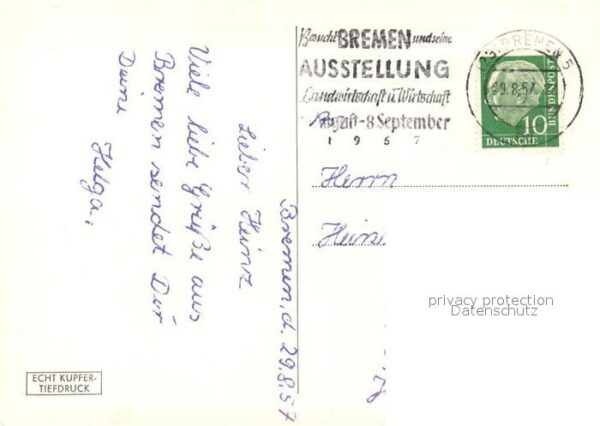 Bremen, d. 29.8.57
Lieber Heinz
Viele liebe Grüße aus
Bremen sendet Dir
Deine
Helga.
ECHT KUPFER-
TIEFDRUCK
Besucht BREMEN und seine
AUSSTELLUNG
Landwirtschaft u. Wirtschaft
August - 8 September
1957
BREMEN 5
29.8.57
10
DEUTSCHE
BUNDESPOST
Herrn
Hein
privacy protection
Datenschutz